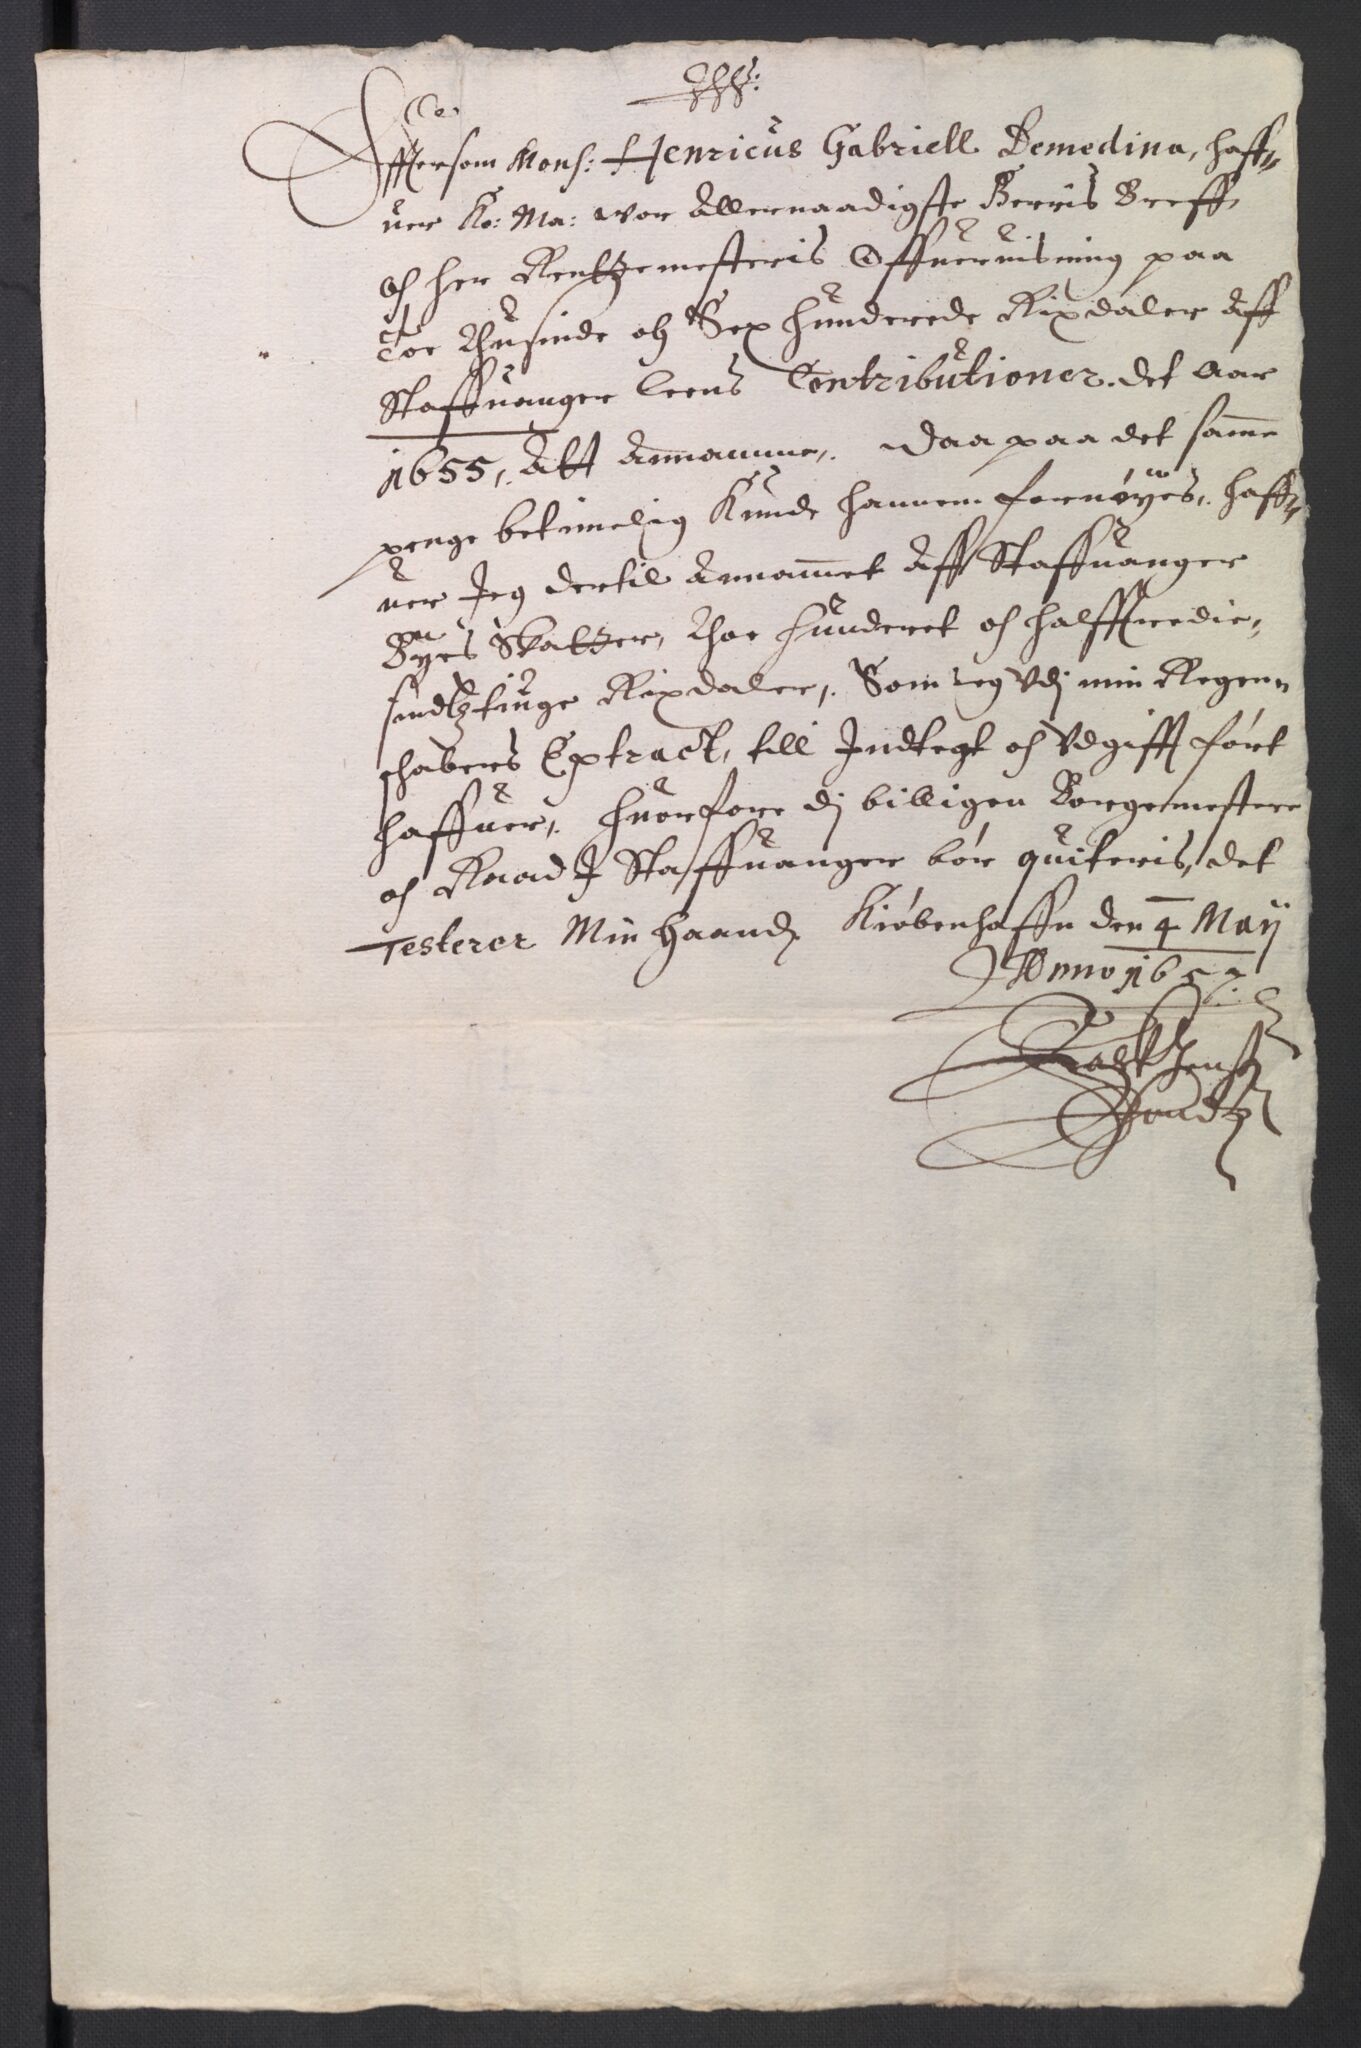 Effersom Mons: Henricus Gabriell Demedina, haff-
uer Ko: Ma: wor Allernaadigste Herris Breff,
oc her Rentzemesteris Offueruisning paa
Toe Thusinde oc Sex hunderede Rixdaler Aff
Staffuanger Leens Contributioner. det Aar
1655, Att Annamme,. Daa paa det samme
penge betimelig Kunde hannem fornøyes,. haff-
uer Jeg dertil Annammet Aff Staffuanger
Byes Skatter, thoe hunderet oc halfftredie-
sindtztiuge Rixdaler,. Som ieg Vdj min Regen-
schabers Extract, till Indtegt oc Vdgifft ført
haffuer,. huorfore dj billigen Borgemestere
oc Raad J Staffuanger bør quiteris, det
Testerer Min Haand, Kiøbenhaffn den 4 Maij
Anno 1657.